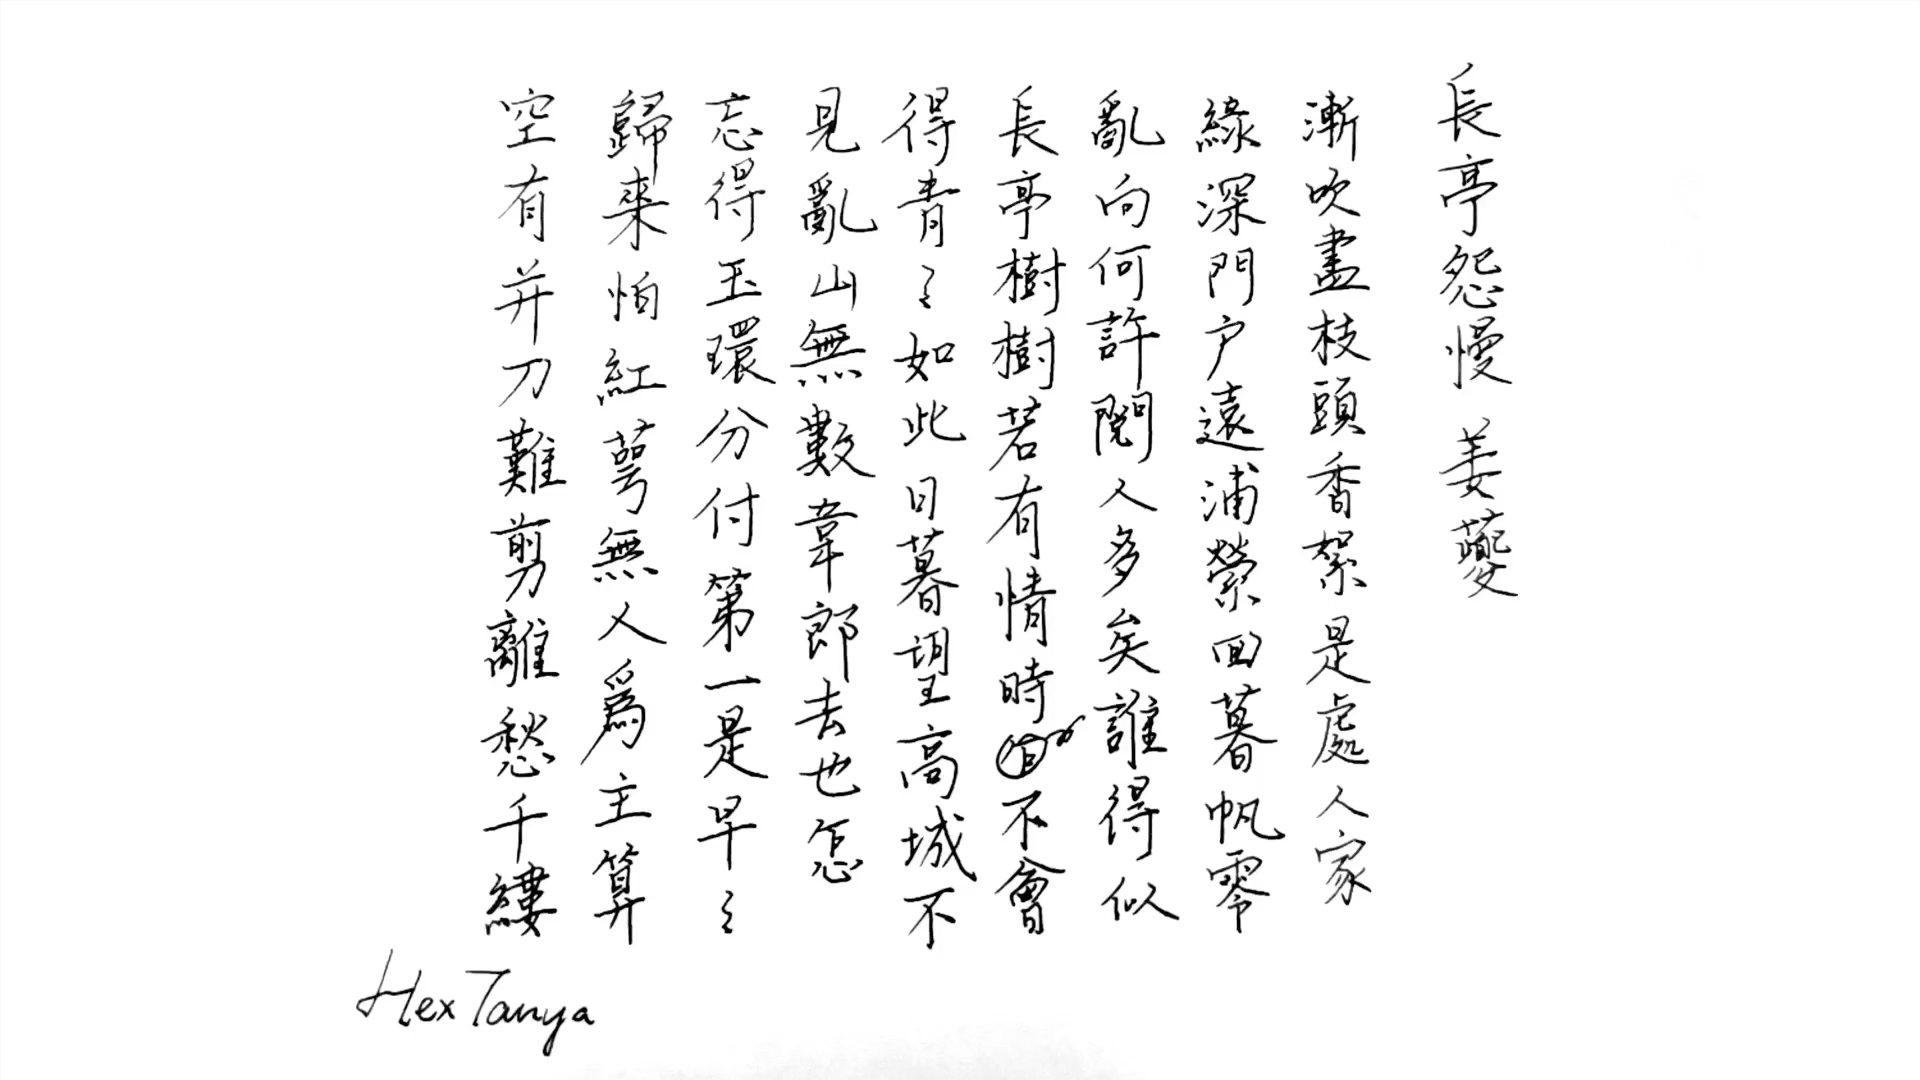 長亭怨慢 姜夔
漸吹盡枝頭香絮是處人家
綠深門户遠浦縈囬暮帆零
亂向何許閱人多矣誰得似
長亭樹樹若有情時不會
得青〻如此日暮望高城不
見亂山無數韋郎去也怎
忘得玉環分付第一是早〻
歸來怕紅萼無人爲主算
空有并刀難剪離愁千縷
HexTanya